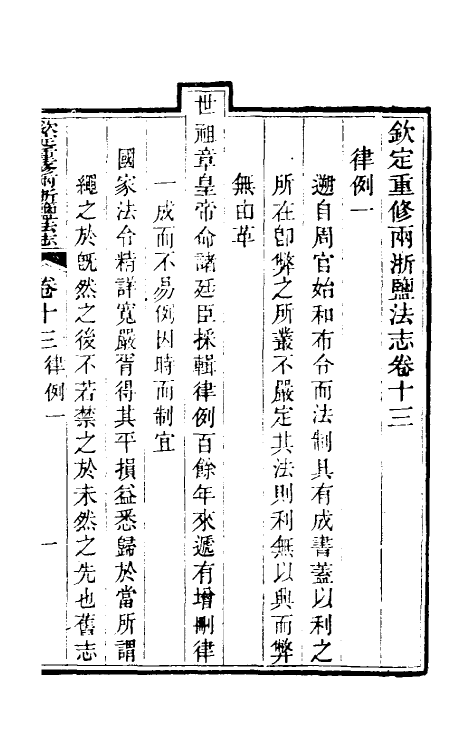 欽定重修兩浙鹽法志卷十三
律例一
遡自周官始和布令而法制具有成書蓋以利之
所在卽弊之所叢不嚴定其法則利無以興而弊
無由革
世祖章皇帝命諸廷臣採輯律例百餘年來遞有增刪律
一成而不易例因時而制宜
國家法令精詳寬嚴胥得其平損益悉歸於當所謂
繩之於旣然之後不若禁之於未然之先也舊志
欽定重修兩浙鹽法志 卷十三 律例一 一